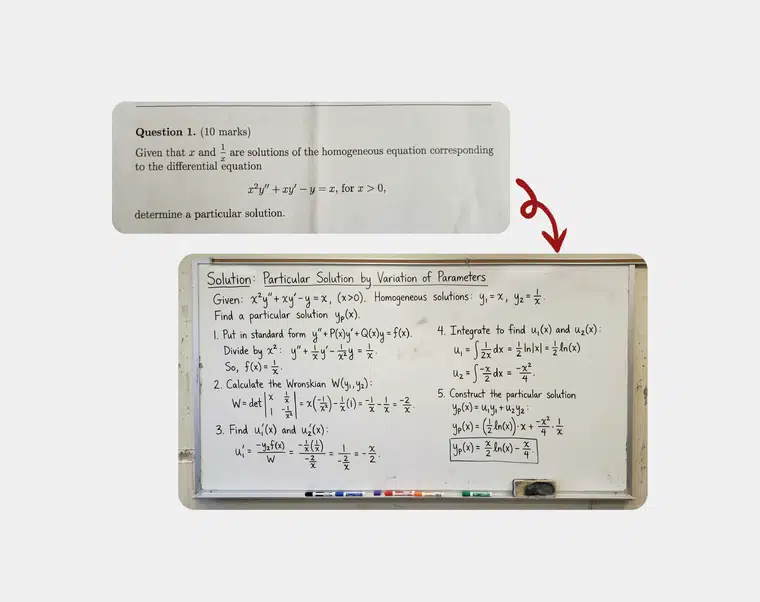 Question 1. (10 marks)
Given that x and 1/x are solutions of the homogeneous equation corresponding
to the differential equation
x²y″ + xy′ − y = x, for x > 0,
determine a particular solution.
Solution: Particular Solution by Variation of Parameters
Given: x²y″ + xy′ − y = x, (x>0). Homogeneous solutions: y₁ = x, y₂ = 1/x.
Find a particular solution yₚ(x).
1. Put in standard form y″ + P(x)y′ + Q(x)y = f(x).
Divide by x²: y″ + 1/x y′ − 1/x² y = 1/x.
So, f(x) = 1/x.
2. Calculate the Wronskian W(y₁, y₂):
W = det |x 1/x; 1 −1/x²| = x(−1/x²) − 1/x(1) = −1/x − 1/x = −2/x.
3. Find u₁′(x) and u₂′(x):
u₁′ = −y₂f(x)/W = −1/x(1/x)/(−2/x) = 1/(−2/x) = −x/2.
4. Integrate to find u₁(x) and u₂(x):
u₁ = ∫ 1/2x dx = 1/2 ln|x| = 1/2 ln(x)
u₂ = ∫ −x/2 dx = −x²/4.
5. Construct the particular solution
yₚ(x) = u₁y₁ + u₂y₂:
yₚ(x) = (1/2 ln(x)) · x + −x²/4 · 1/x
yₚ(x) = x/2 ln(x) − x/4.